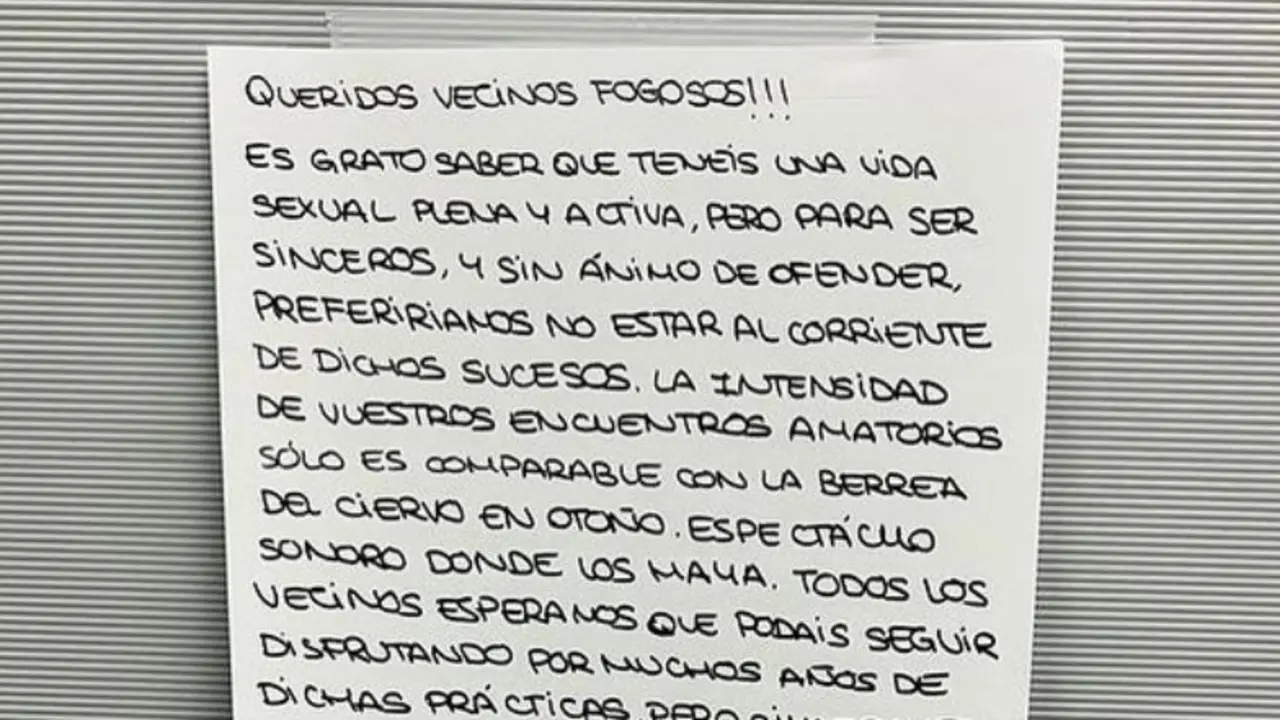 QUERIDOS VECINOS FOGOSOS!!!
ES GRATO SABER QUE TENEÍS UNA VIDA
SEXUAL PLENA Y ACTIVA, PERO PARA SER
SINCEROS, Y SIN ÁNIMO DE OFENDER,
PREFERIRIAMOS NO ESTAR AL CORRIENTE
DE DICHOS SUCESOS. LA INTENSIDAD
DE VUESTROS ENCUENTROS AMATORIOS
SÓLO ES COMPARABLE CON LA BERREA
DEL CIERVO EN OTOÑO. ESPECTÁCULO
SONORO DONDE LOS HAYA. TODOS LOS
VECINOS ESPERAMOS QUE PODAIS SEGUIR
DISFRUTANDO POR MUCHOS AÑOS DE
DICHAS PRÁCTICAS, PERO